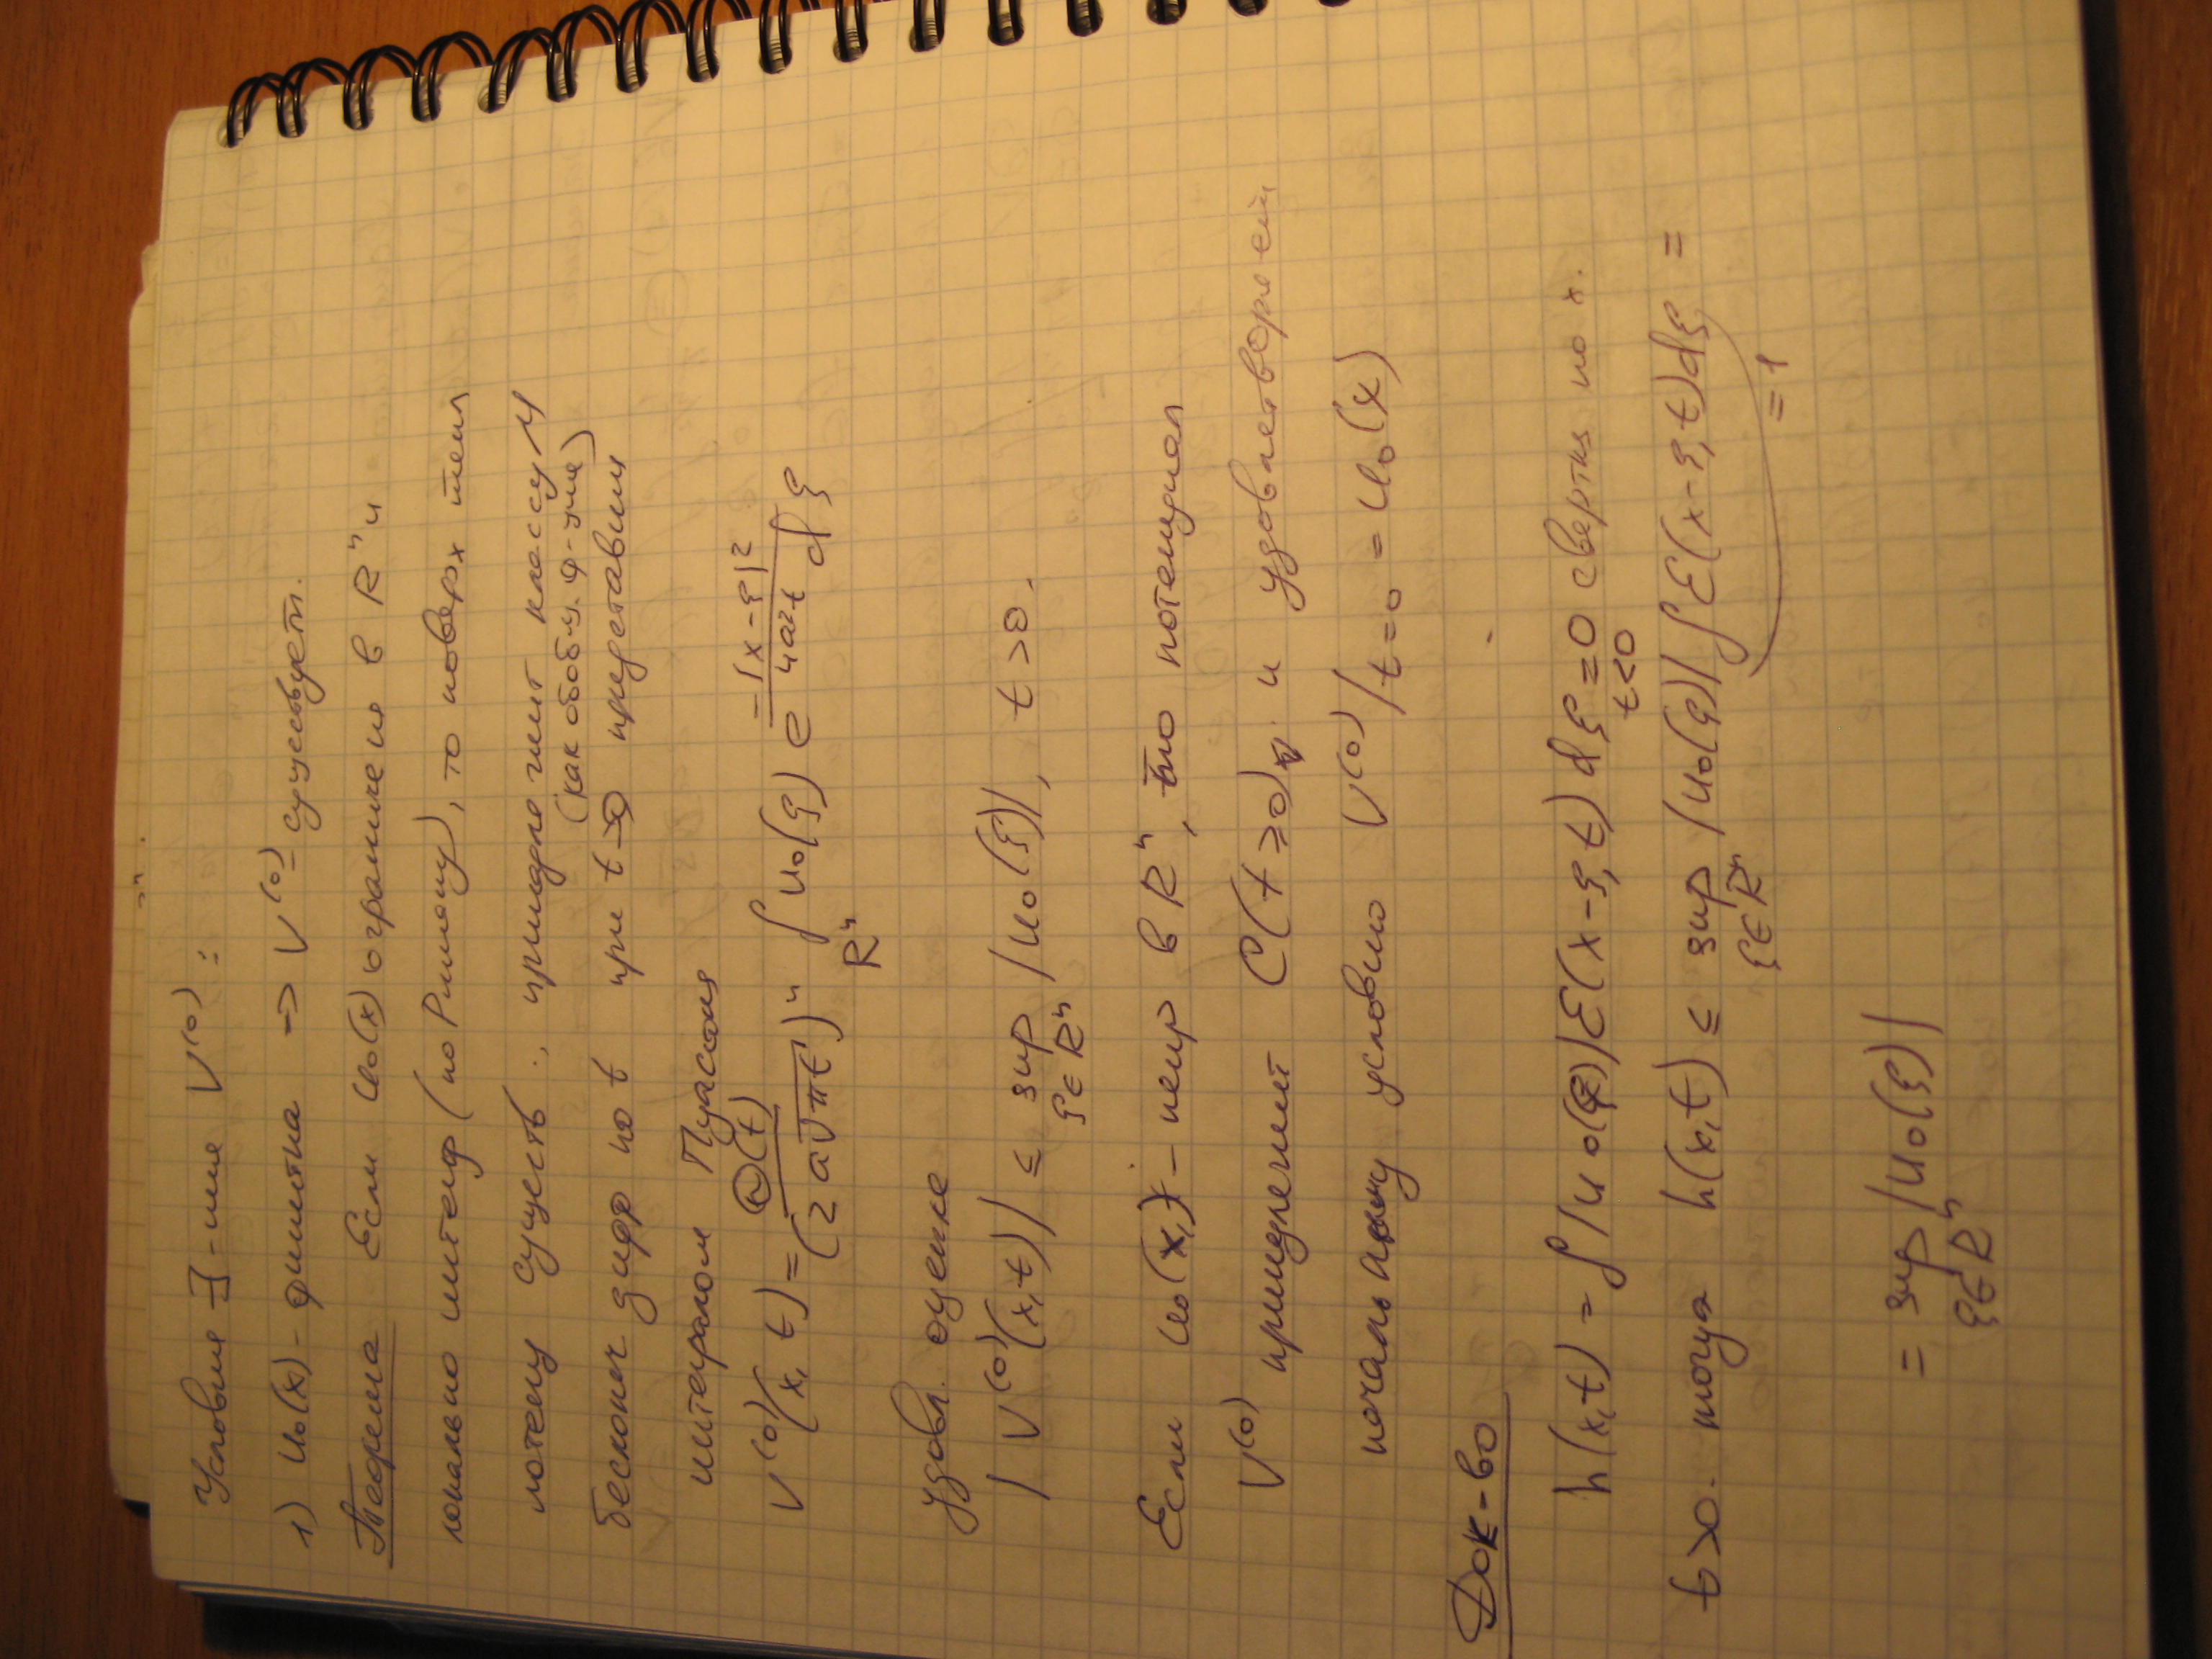 Условия ∃-ния V⁽⁰⁾:
1) u₀(x) - финитна => V⁽⁰⁾ - существует.
Теорема Если u₀(x) ограничена в Rⁿ и
локально интегр (по Риману), то поверх тепл
потенц существ., принадлежит классу M
(как обобщ. ф-ция)
бесконеч дифр по t при t→0 представим
интегралом Пуассона
V⁽⁰⁾(x,t) = Θ(t)/(2a√πt)ⁿ ∫_Rⁿ u₀(ξ) e^(-|x-ξ|²/4a²t) dξ
удовл. оценке
|V⁽⁰⁾(x,t)| ≤ sup_{ξ∈Rⁿ} |u₀(ξ)|, t>0.
Если u₀(x) - непр в Rⁿ, то потенциал
V⁽⁰⁾ принадлежит C(t≥0) и удовлетворяет
начальному условию V⁽⁰⁾|t=0 = u₀(x)
Док-во
h(x,t) = ∫|u₀(ξ)|ε(x-ξ,t)dξ = 0 свертка по x.
t<0
t>0. тогда h(x,t) ≤ sup_{ξ∈Rⁿ} |u₀(ξ)| ∫ε(x-ξ,t)dξ =
=1
= sup_{ξ∈Rⁿ} |u₀(ξ)|